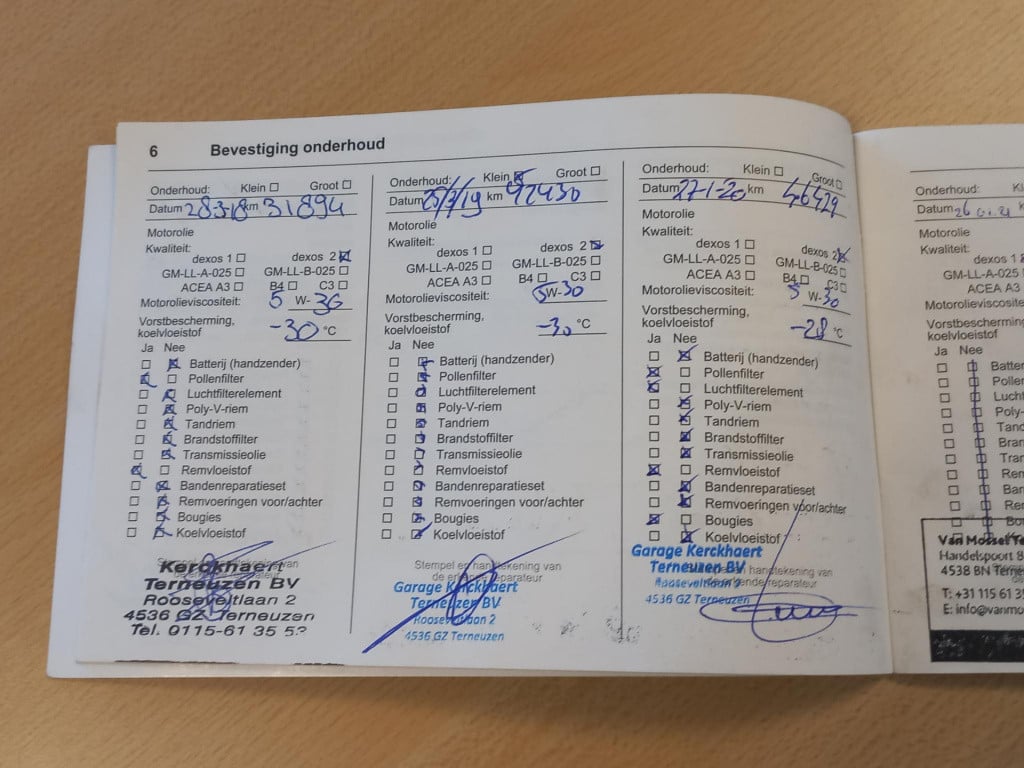 6 Bevestiging onderhoud
Onderhoud: Klein Groot
Datum 28-3-18 km 31894
Motorolie
Kwaliteit:
dexos 1 dexos 2
GM-LL-A-025 GM-LL-B-025
ACEA A3 B4 C3
Motorolieviscositeit: 5 W-30
Vorstbescherming,
koelvloeistof -30 °C
Ja Nee
Batterij (handzender)
Pollenfilter
Luchtfilterelement
Poly-V-riem
Tandriem
Brandstoffilter
Transmissieolie
Remvloeistof
Bandenreparatieset
Remvoeringen voor/achter
Bougies
Koelvloeistof
Kerckhaert
Terneuzen BV
Rooseveltlaan 2
4536 GZ Terneuzen
Tel. 0115-61 35 52
Onderhoud: Klein Groot
Datum 25/7/19 km 42430
Motorolie
Kwaliteit:
dexos 1 dexos 2
GM-LL-A-025 GM-LL-B-025
ACEA A3 B4 C3
Motorolieviscositeit: 5W-30
Vorstbescherming,
koelvloeistof -30 °C
Ja Nee
Batterij (handzender)
Pollenfilter
Luchtfilterelement
Poly-V-riem
Tandriem
Brandstoffilter
Transmissieolie
Remvloeistof
Bandenreparatieset
Remvoeringen voor/achter
Bougies
Koelvloeistof
Stempel en handtekening van
de erkende reparateur
Garage Kerckhaert
Terneuzen BV
Rooseveltlaan 2
4536 GZ Terneuzen
Onderhoud: Klein Groot
Datum 27-1-20 km 46429
Motorolie
Kwaliteit:
dexos 1 dexos 2
GM-LL-A-025 GM-LL-B-025
ACEA A3 B4 C3
Motorolieviscositeit: 5 W-30
Vorstbescherming,
koelvloeistof -28 °C
Ja Nee
Batterij (handzender)
Pollenfilter
Luchtfilterelement
Poly-V-riem
Tandriem
Brandstoffilter
Transmissieolie
Remvloeistof
Bandenreparatieset
Remvoeringen voor/achter
Bougies
Koelvloeistof
Garage Kerckhaert
Terneuzen BV
Rooseveltlaan 2
4536 GZ Terneuzen
Onderhoud: Kl
Datum 26 01 21
Motorolie
Kwaliteit:
dexos 1
GM-LL-A-025
ACEA A3
Motorolieviscositeit
Vorstbescherming
koelvloeistof
Ja Nee
Batter
Pollen
Luchtf
Poly-V
Tand
Bran
Tran
Rem
Ban
Rem
Bou
Van Mossel Te
Handelspoort 8
4538 BN Terne
T: +31 115 61 35
E: info@vanmo